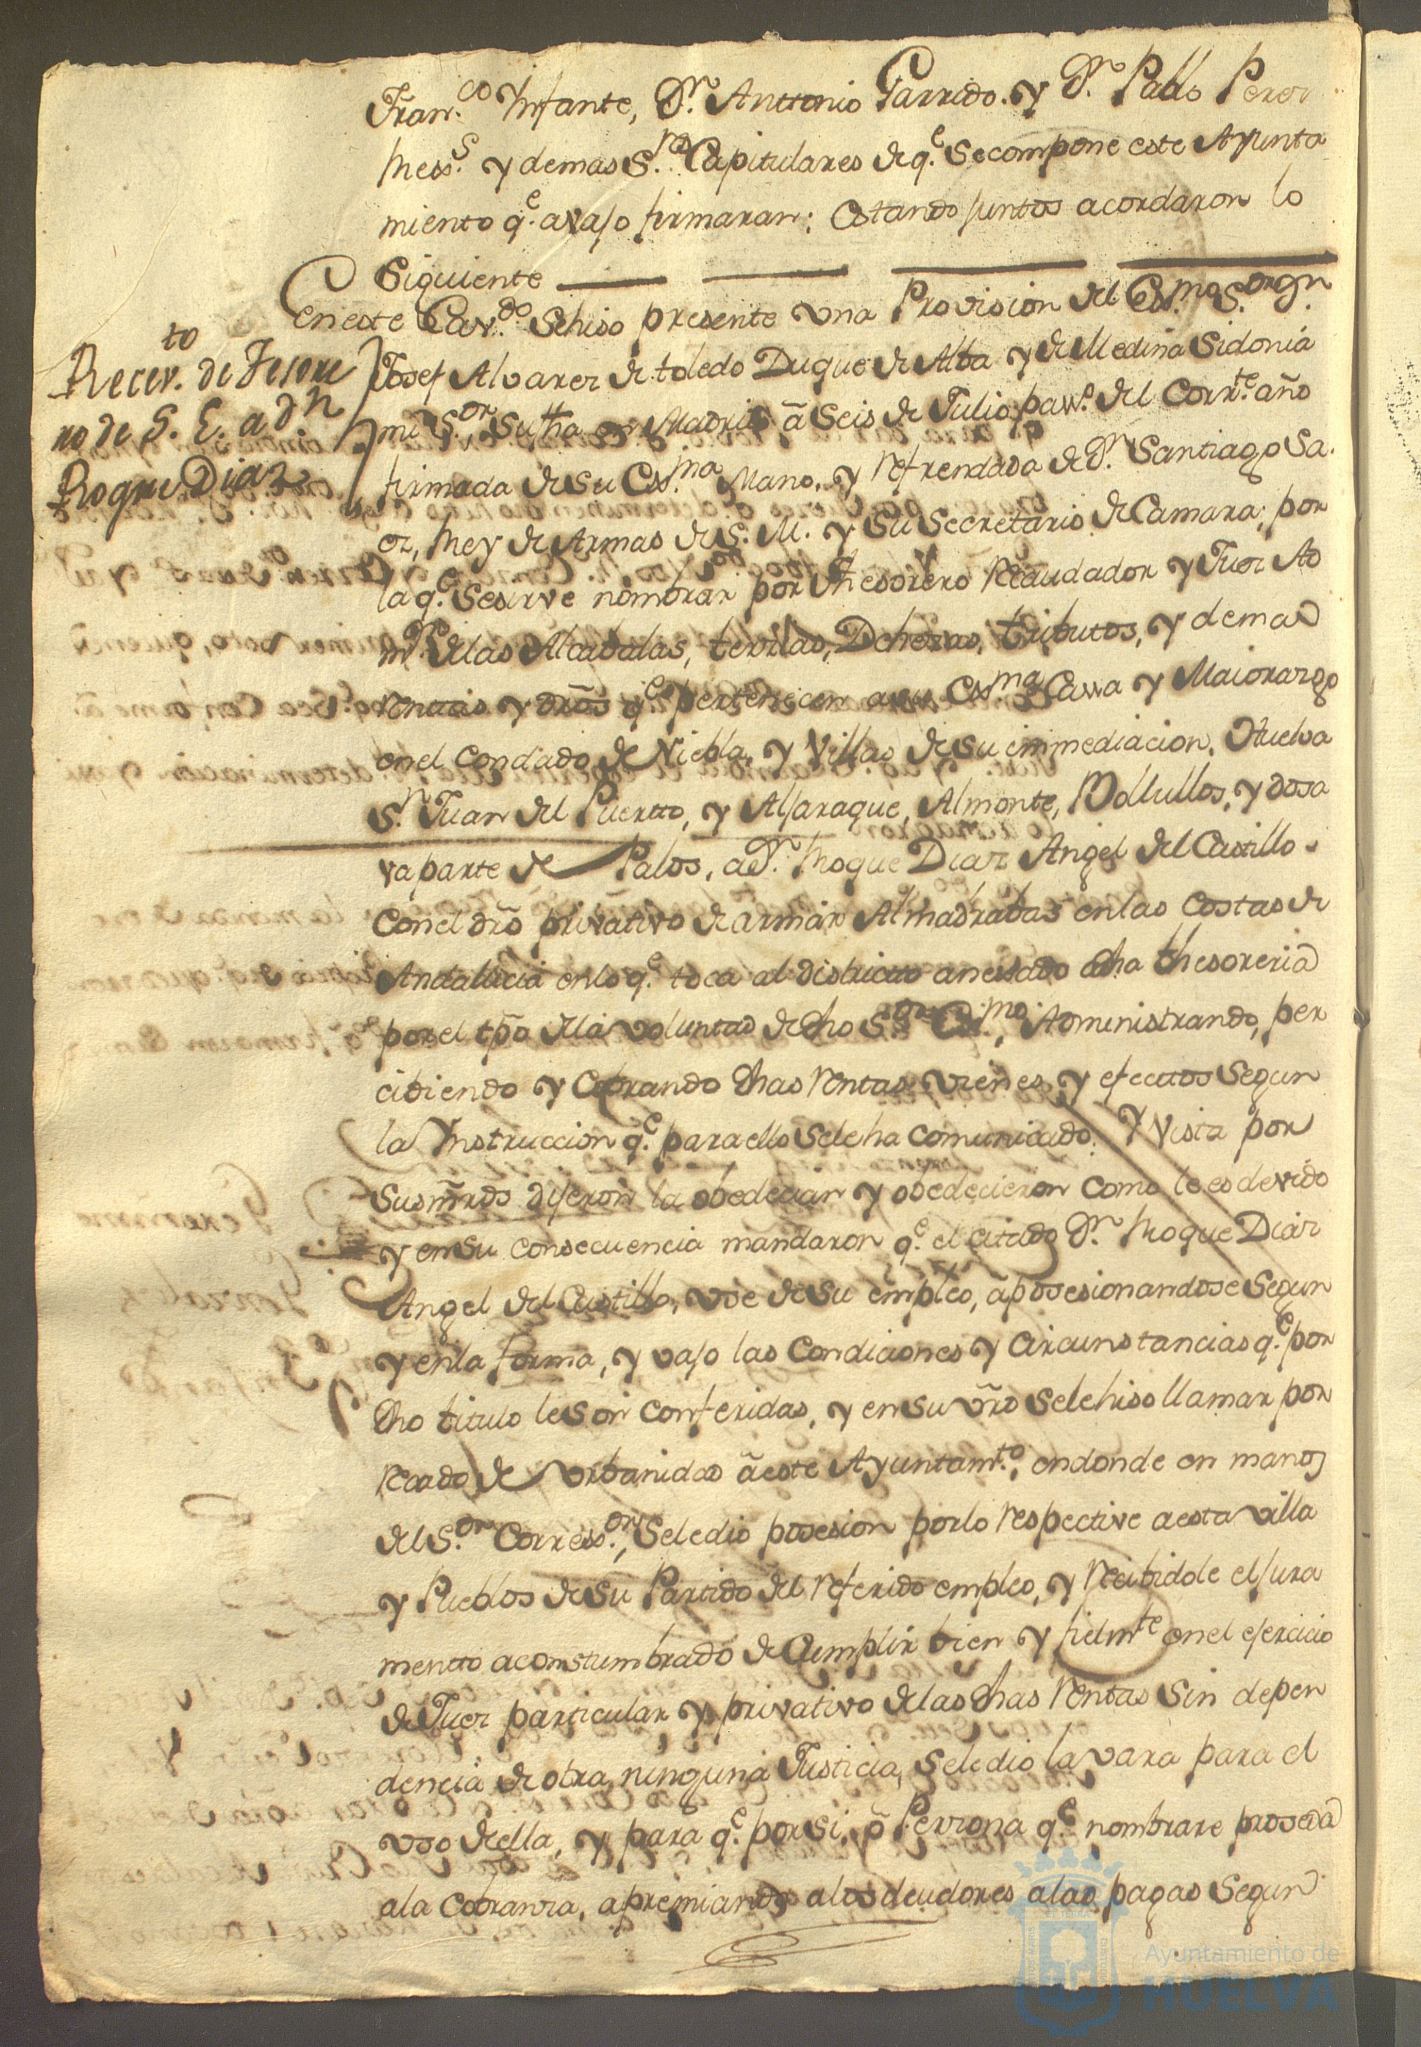 Fran.co Ynfante, Dn. Anttonio Garrido. y Dn. Pablo Perez
Rexs.s y demas S.res Capitulares de q.e se compone este Ayunta
miento q.e avajo firmaran; Estando juntos acordaron lo
Siguiente
Recev.to de Tesore
ro de S. E. a dn
Roque Diaz
en este Cav.do Se hiso presente una Provision del Exmo S.or Dn.
Josef Alvarez de toledo Duque de Alba y de Medina Sidonia
mi S.or, su fha en Madrid â Seis de Julio pas.o del Corr.te año
firmada de su Ex.ma Mano, y refrendada de Dn. Santiago Sa.
ez, Rey de Armas de S. M. y su Secretario de Camara; por
la q.e Se sirve nombrar por thesorero Recaudador y Juez Ad
m.or de las Alcabalas, tercias, Dehesas, tributos, y demas
rentas y dros q.e pertenecen a su Exma Cassa y Maiorazgo
en el Condado de Niebla, y Villas de su immediacion, Huelva
S.n Juan del Puertto, y Aljaraque, Almonte, Bollullos, y dosa
va parte de Palos, a Dn. Roque Diaz Angel del Castillo.
Con el dro privativo de armar Almadrabas en las Costas de
Andalucia en lo q.e toca al districtto anexsado a dha thesoreria
por el tpo de la voluntad de dho S.or Ex.mo, Administrando, per
cibiendo y Cobrando dhas rentas vienes, y efecttos Segun
la Ynstruccion q.e para ello se le ha comunicado. Y vista por
Sus mrds dijeron la obedecian y obedecieron como le es devido
y en su consecuencia mandaron q.e el citado Dn. Roque Diaz
Angel del Castillo, use de su empleo, aposesionandose Segun
y en la forma, y vajo las Condiciones y Circunstancias q.e por
dho titulo le son conferidas, y en su vro se le hiso llamar por
recado de urbanidad â este Ayuntam.to, en donde en manos
del S.or Corress.or, Se le dio posesion por lo respective a esta villa
y Pueblos de su Partido del referido empleo, y recibidole el jura
mentto acomstumbrado de Cumplir bien y fielm.te en el ejercicio
de Juez particular y privativo de las dhas rentas Sin depen
dencia de otra ninguna Justicia, se le dio la vara para el
uso de ella, y para q.e por si, ô Perzona q.e nombrare proseda
a la Cobranza, apremiando a los deudores a las pagas Segun
Ayuntamiento de
HUELVA